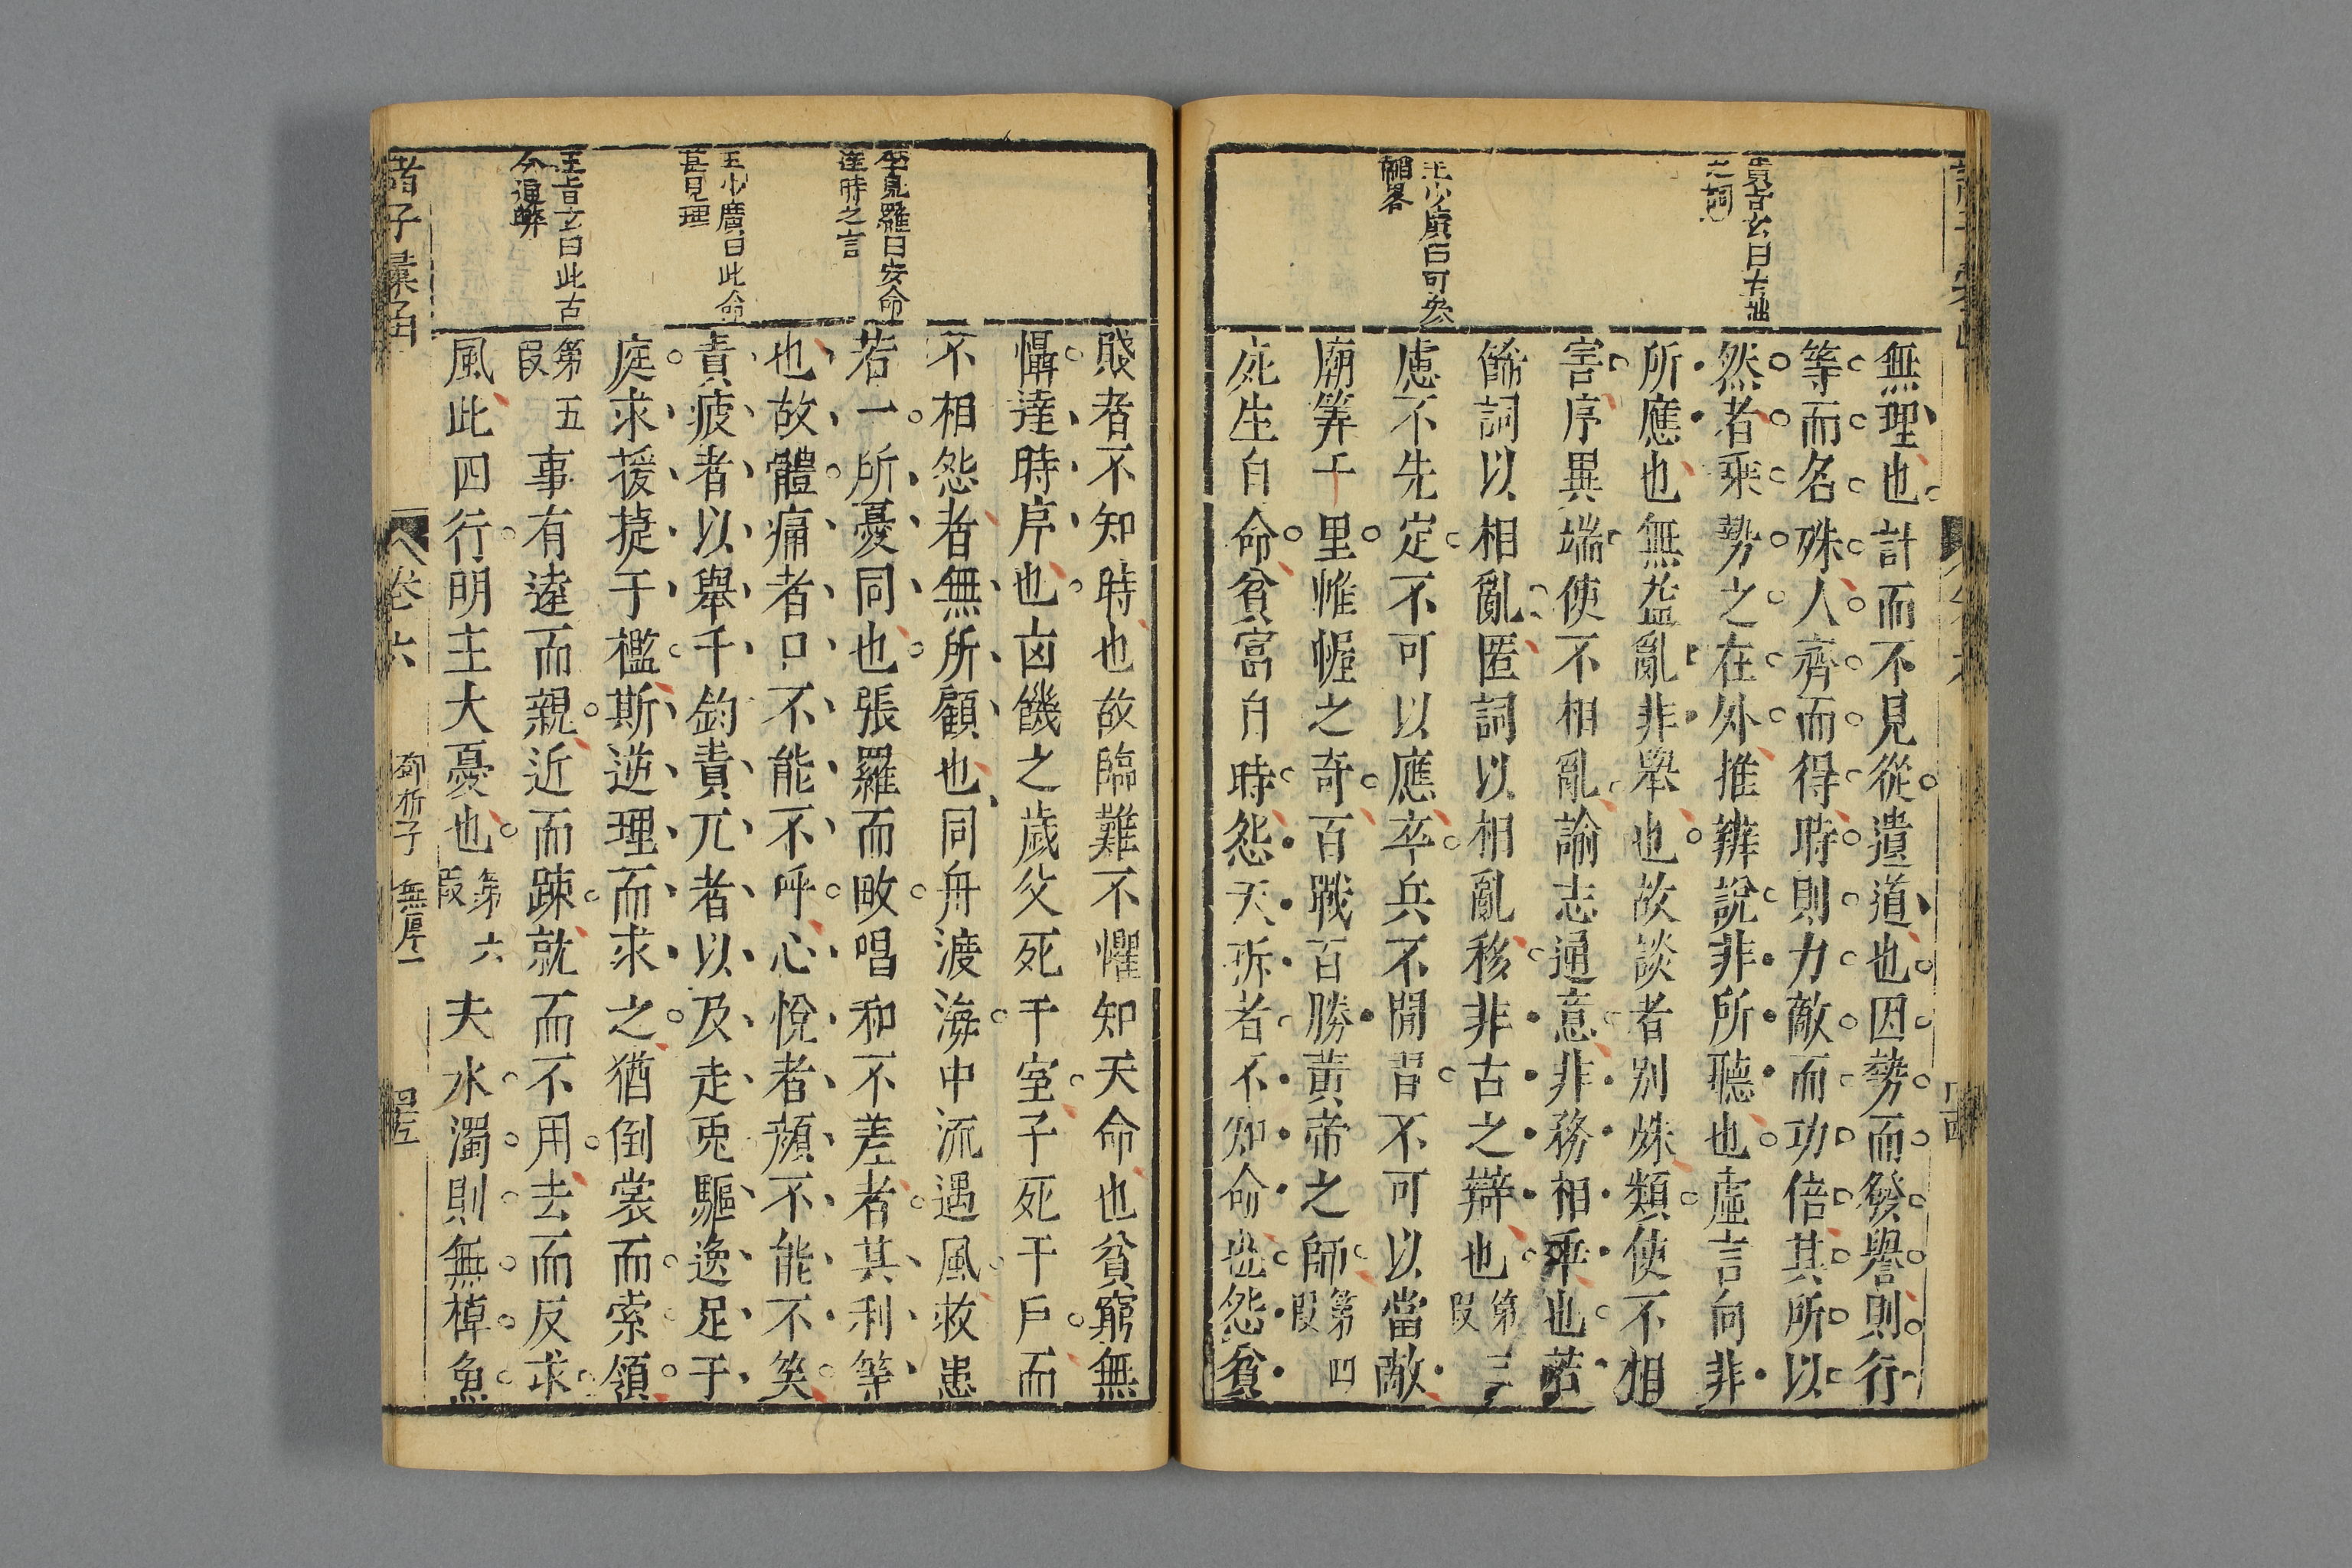 無理也計而不見從遺道也因勢而發譽則行
等而名殊人齊而得時則力敵而功倍其所以
然者乘勢之在外推辨說非所聽也虛言向非
所應也無益亂非舉也故談者別殊類使不相
害序異端使不相亂諭志通意非務相乖也若
飾詞以相亂匿詞以相亂移非古之辯也第三段
慮不先定不可以應卒兵不閒習不可以當敵
廟筭千里帷幄之奇百戰百勝黃帝之師第四段
死生自命貧富自時怨夭折者不知命也怨貧
賤者不知時也故臨難不懼知天命也貧窮無
懾達時序也凶饑之歲父死于室子死于戶而
不相怨者無所顧也同舟渡海中流遇風救患
若一所憂同也張羅而畋唱和不差者其利等
也故體痛者口不能不呼心悅者顏不能不笑
責疲者以舉千鈞責兀者以及走兎驅逸足于
庭求援㨗于檻斯逆理而求之猶倒裳而索領
第五段事有逺而親近而踈就而不用去而反求
風此四行明主大憂也第六段夫水濁則無棹魚
之詞
王少廣曰可叅
韜畧
李見羅曰安命
達時之言
王少廣曰此命
甚見理
王旨玄曰此古
今通弊
諸子彙函
卷六
鄧析子 無厚一